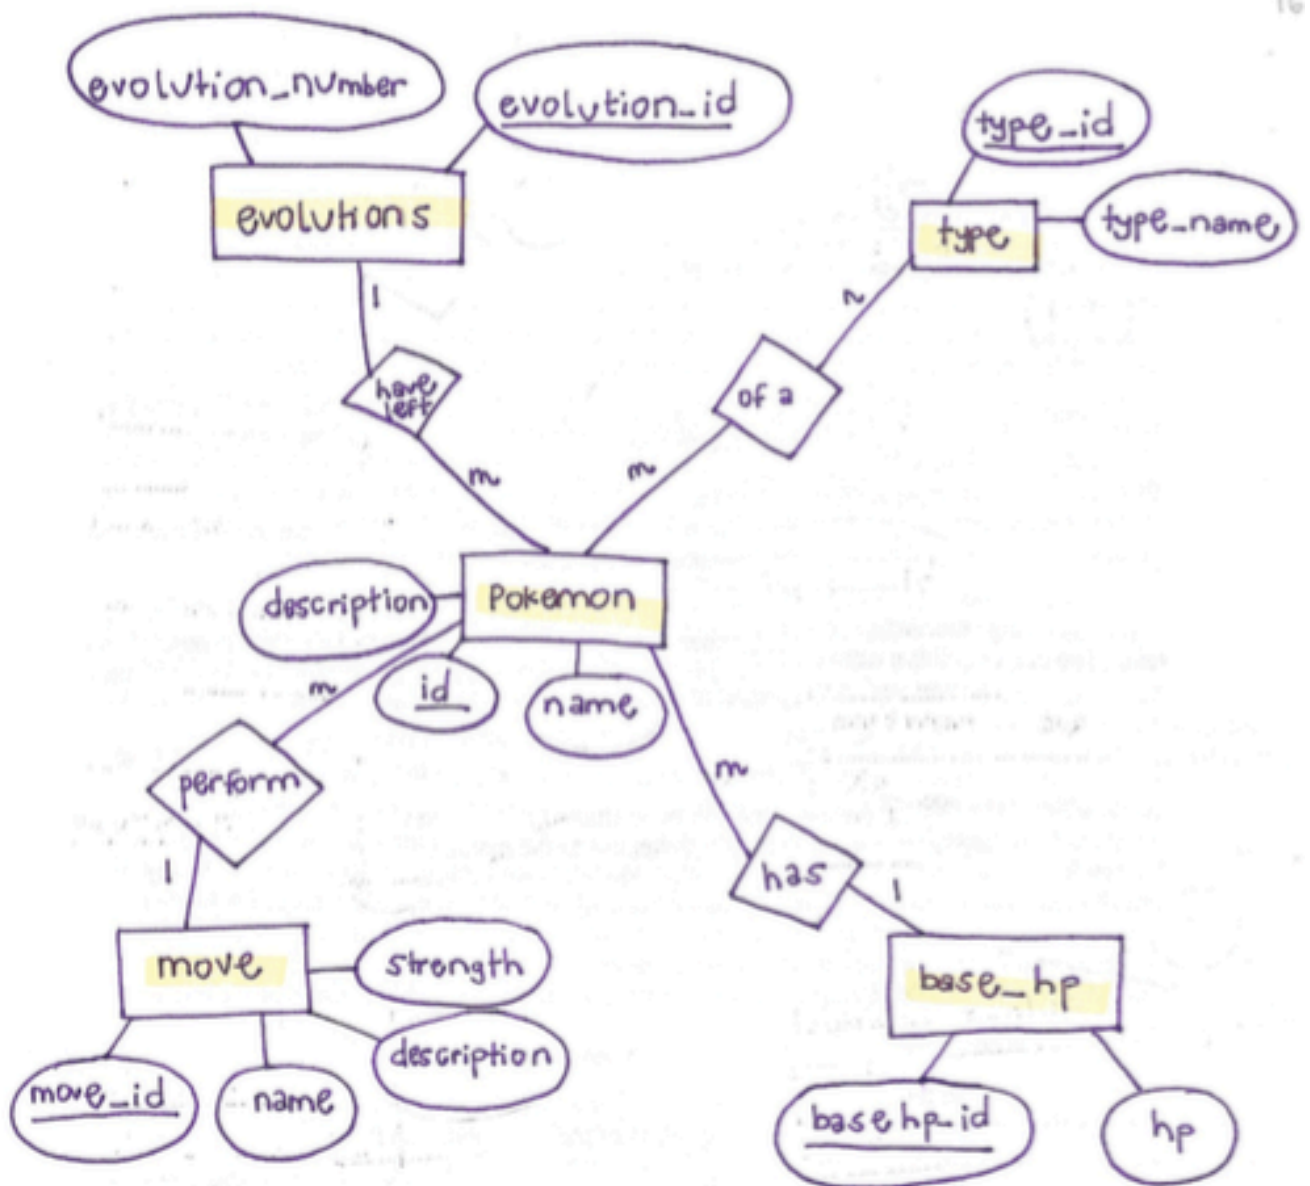 16
evolution_number
evolution_id
type_id
evolutions
type
type_name
1
2
have
left
of a
m
m
description
Pokemon
id
name
m
m
perform
has
1
1
move
strength
base_hp
description
move_id
name
basehp_id
hp